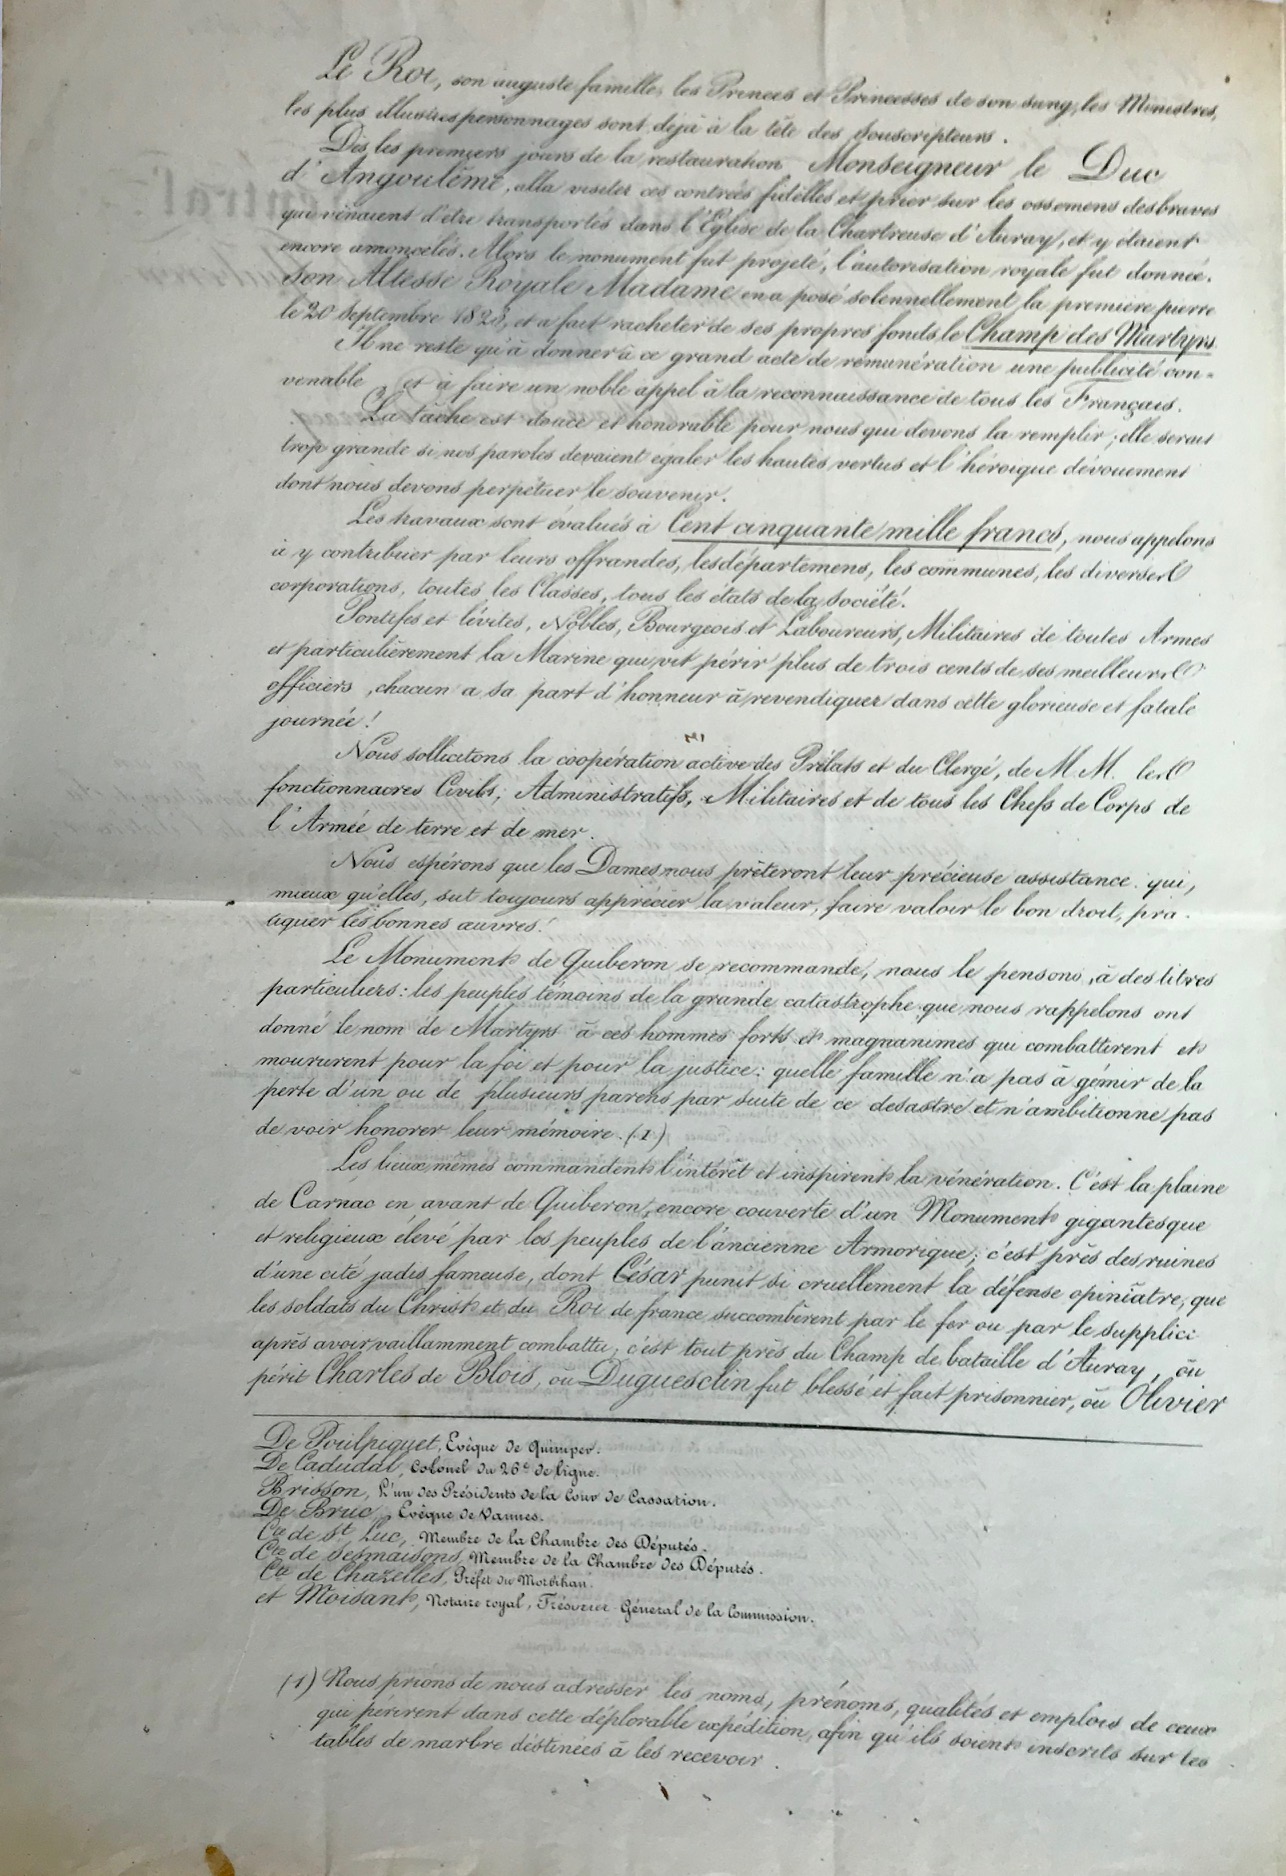 Le Roi, son auguste famille, les Princes et Princesses de son sang, les Ministres,
les plus illustres personnages sont déjà à la tête des Souscripteurs.
Dès les premiers jours de la restauration Monseigneur le Duc
d'Angoulême, alla visiter ces contrées fidelles et prier sur les ossemens des braves
qui venaient d'être transportés dans l'Eglise de la Chartreuse d'Auray, et y étaient
encore amoncelés. Alors le monument fut projeté, l'autorisation royale fut donnée.
Son Altesse Royale Madame en a posé solennellement la première pierre
le 20 Septembre 1823, et a fait racheter de ses propres fonds le Champ des Martyrs
Il ne reste qu'à donner à ce grand acte de rémunération une publicité con-
venable et à faire un noble appel à la reconnaissance de tous les Français.
La tâche est douce et honorable pour nous qui devons la remplir; elle serait
trop grande si nos paroles devaient egaler les hautes vertus et l'héroïque dévouement
dont nous devons perpétuer le souvenir.
Les travaux sont évalués à Cent cinquante mille francs, nous appelons
à y contribuer par leurs offrandes, les départemens, les communes, les diverses
corporations, toutes les Classes, tous les états de la Société.
Pontifes et lévites, Nobles, Bourgeois et Laboureurs, Militaires de toutes Armes
et particulièrement la Marine qui vit périr plus de trois cents de ses meilleurs
officiers, chacun a sa part d'honneur à revendiquer dans cette glorieuse et fatale
journée!
Nous sollicitons la coopération active des Prélats et du Clergé, de M.M. les
fonctionnaires Civils, Administratifs, Militaires et de tous les Chefs de Corps de
l'Armée de terre et de mer.
Nous espérons que les Dames nous prêteront leur précieuse assistance. qui,
mieux qu'elles, sut toujours apprécier la valeur, faire valoir le bon droit, pra-
tiquer les bonnes œuvres!
Le Monument de Quiberon se recommande, nous le pensons, à des titres
particuliers: les peuples témoins de la grande catastrophe que nous rappelons ont
donné le nom de Martyrs à ces hommes forts et magnanimes qui combattirent et
moururent pour la foi et pour la justice: quelle famille n'a pas à gémir de la
perte d'un ou de plusieurs parens par suite de ce desastre et n'ambitionne pas
de voir honorer leur mémoire. (1)
Les lieux mêmes commandent l'intérêt et inspirent la vénération. C'est la plaine
de Carnac en avant de Quiberon, encore couverte d'un Monument gigantesque
et religieux élevé par les peuples de l'ancienne Armorique; c'est près des ruines
d'une cité jadis fameuse, dont César punit si cruellement la défense opiniâtre, que
les soldats du Christ et du Roi de france succombèrent par le fer ou par le supplice
après avoir vaillamment combattu; c'est tout près du Champ de bataille d'Auray, où
périt Charles de Blois, où Duguesclin fut blessé et fait prisonnier, où Olivier
De Poulpiquet, Evêque de Quimper.
De Cadudal, Colonel du 26e de ligne.
Brisson, L'un des Présidents de la Cour de Cassation.
De Bruc, Evêque de Vannes.
Cte de St Luc, Membre de la Chambre des Députés.
Cte de Sesmaisons, Membre de la Chambre des Députés.
Cte de Chazelles, Préfet du Morbihan.
et Moisant, Notaire royal, Trésorier Général de la Commission.
(1) Nous prions de nous adresser les noms, prénoms, qualités et emplois de ceux
qui périrent dans cette déplorable expédition, afin qu'ils soient inscrits sur les
tables de marbre destinées à les recevoir.